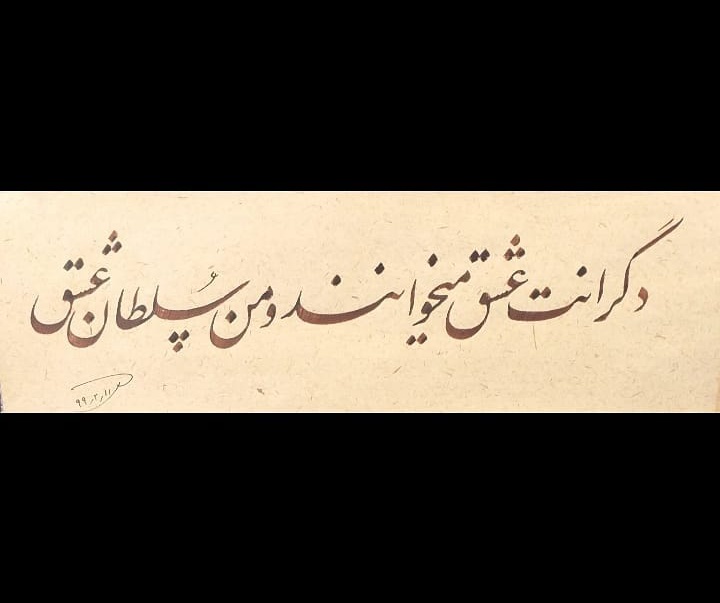 دگرانت عشق میخوانند و من سلطان عشق
۹۹٫۳٫۱۱